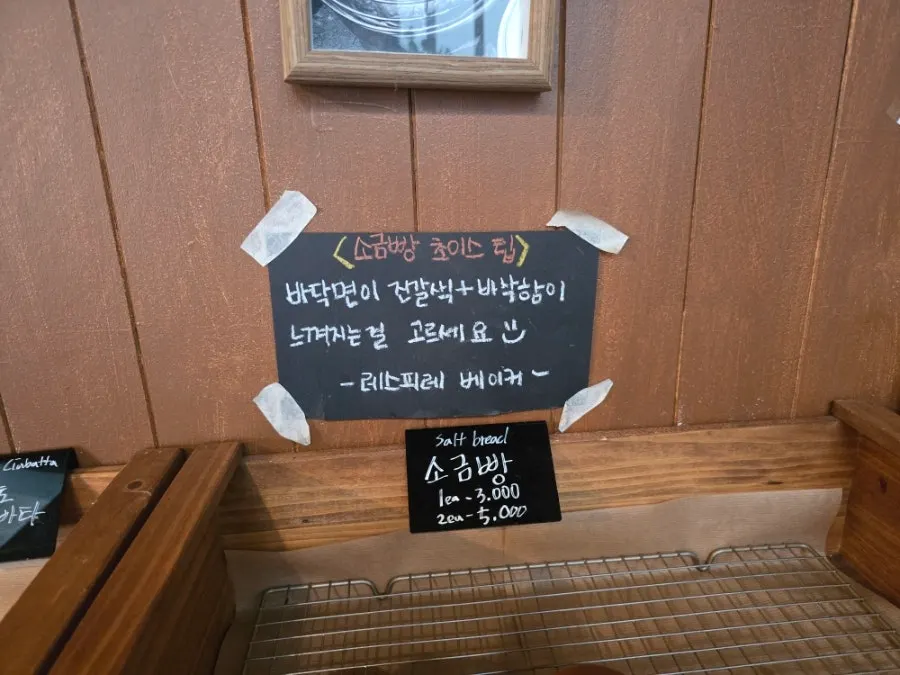 <소금빵 초이스 팁>
바닥면이 진갈색+바삭함이
느껴지는걸 고르세요
-레스피레 베이커-
Salt bread
소금빵
1ea-3.000
2ea-5.000
Ciabatta
바타